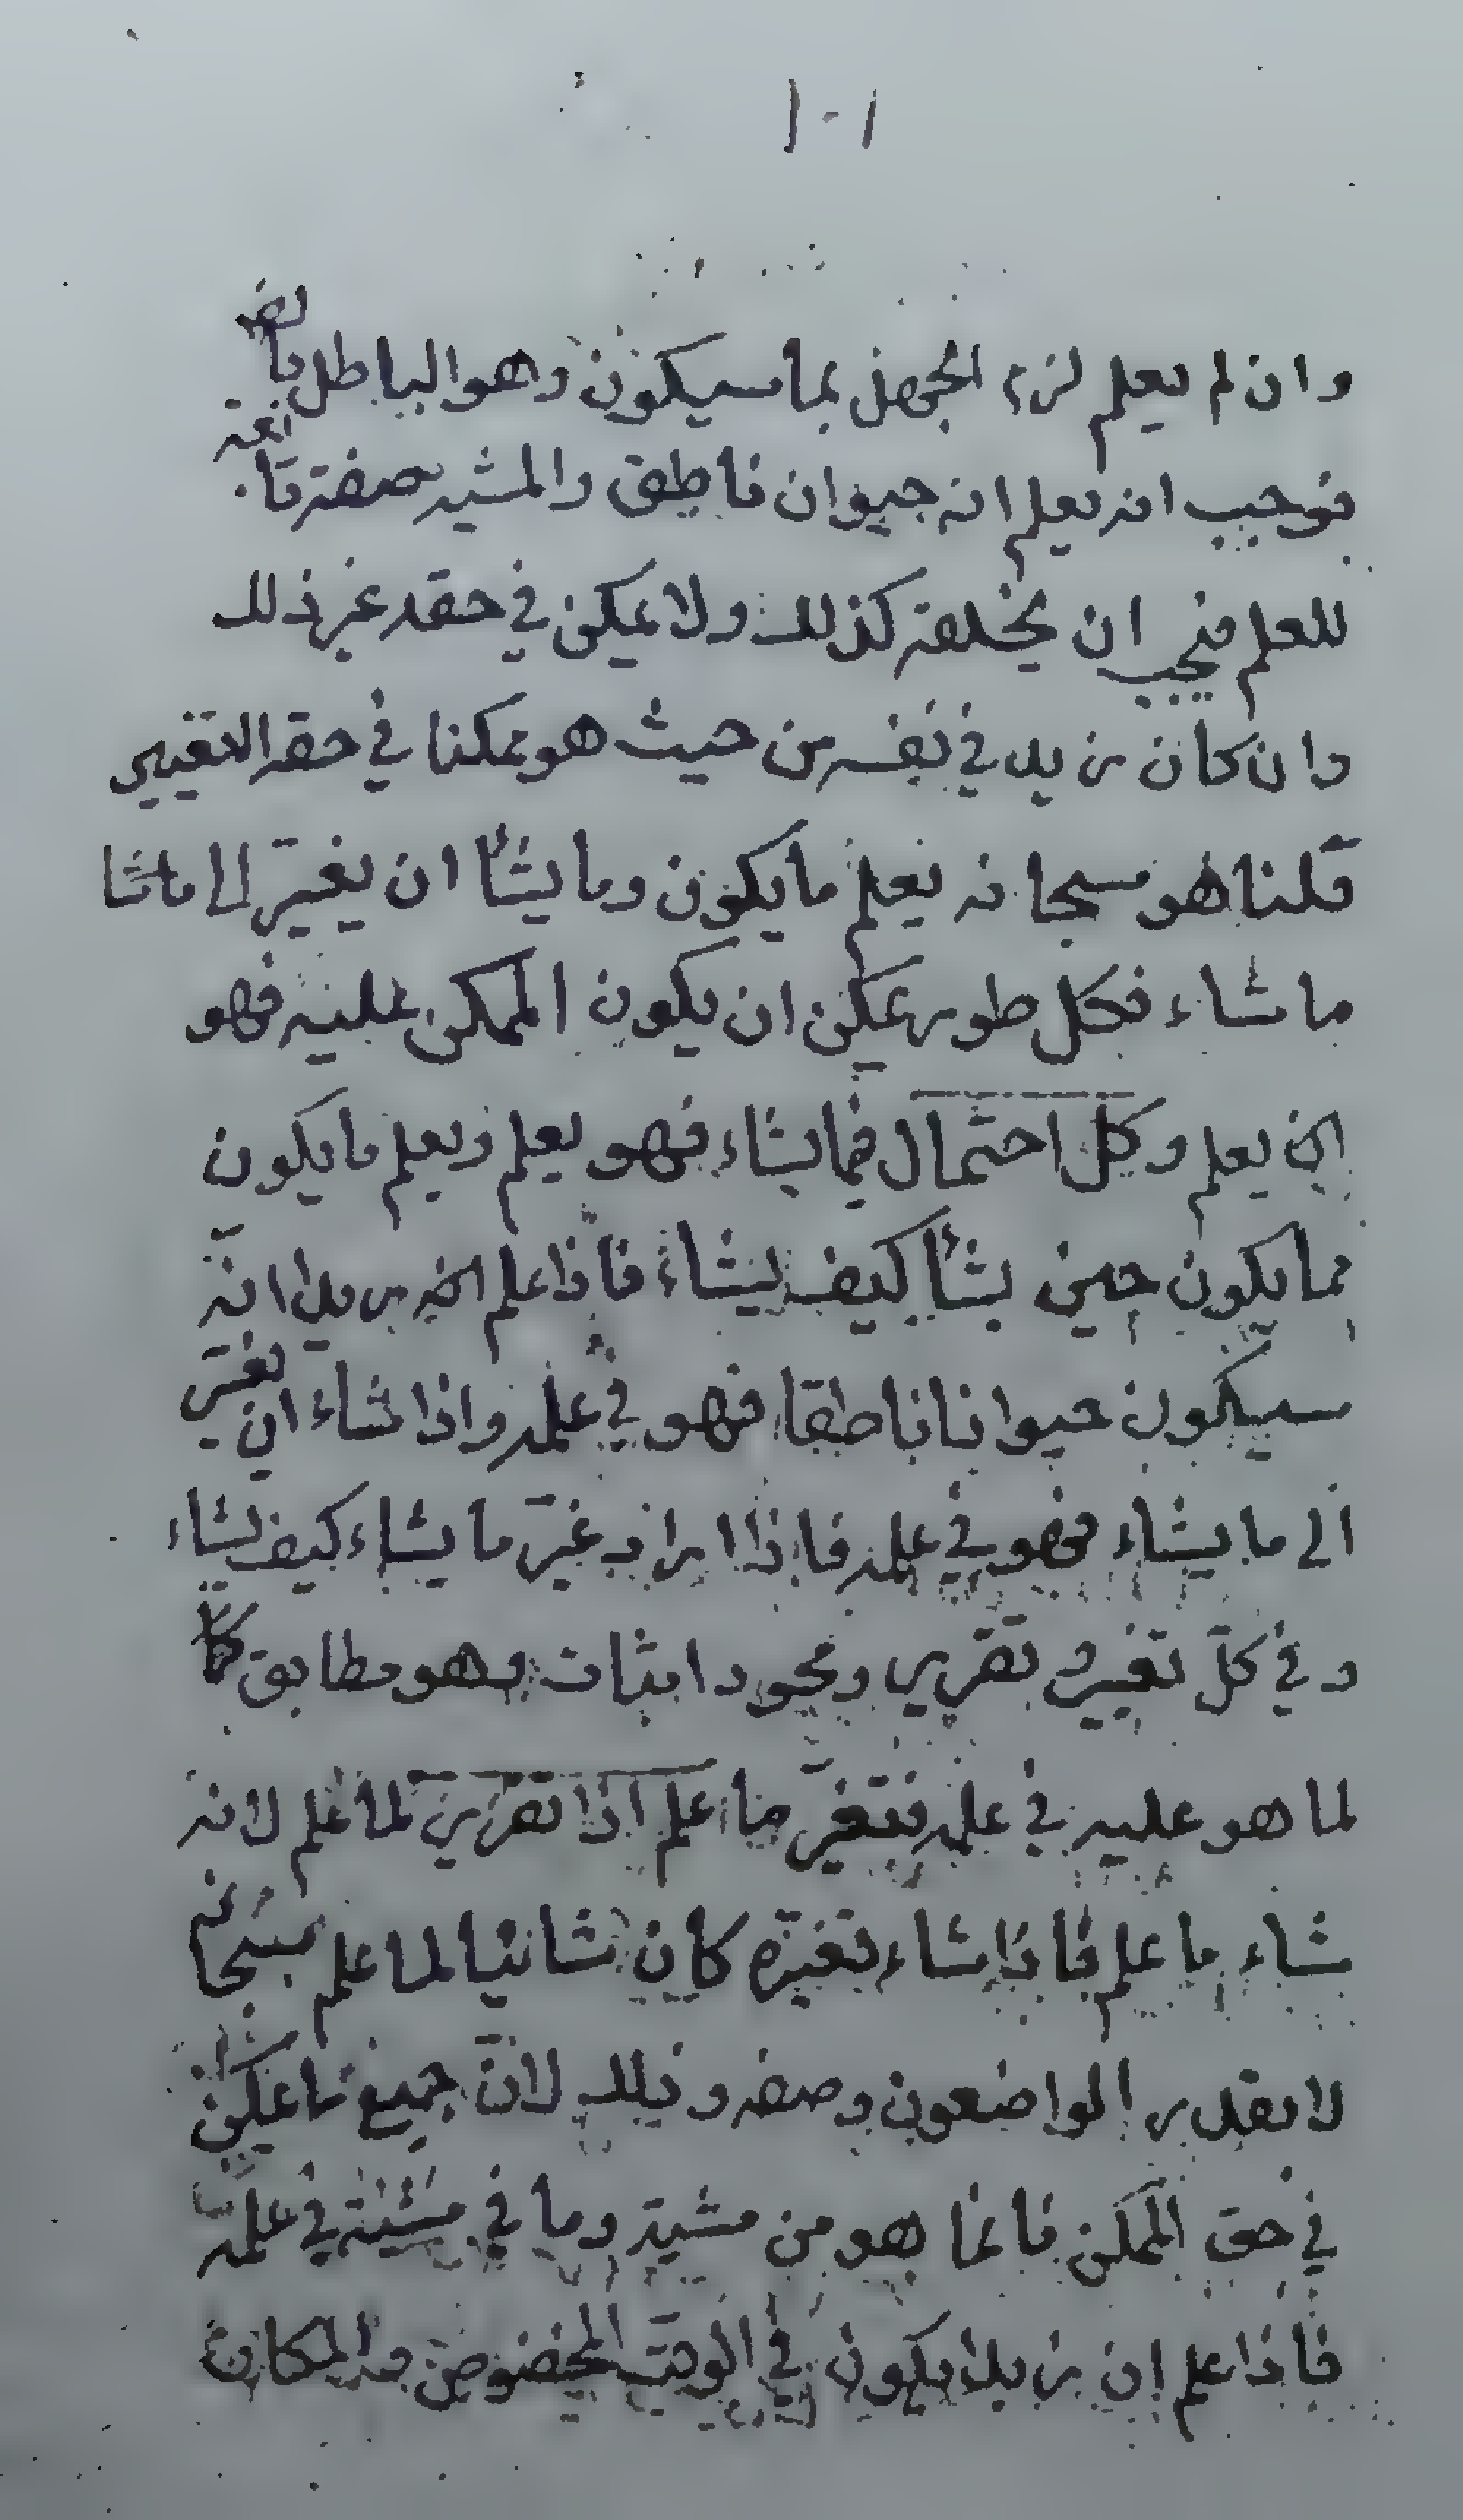 ١٠١
وان لم يعلم لزم الجهل بما سيكون وهو الباطل بالضر
فوجب انه يعلم انه حيوان ناطق والمشية صفة تابعة
للعلم فيجب ان يخلقه كذلك ولا يمكن في حقه غير ذلك
وان كان زيد في نفسه من حيث هو ممكنا في حقه التغيير
قلنا هو سبحانه يعلم ما يكون وما يشأ ان يغيّر الى ما شا
ما شاء فكل طور يمكن ان يكون الممكن عليه فهو
يعلم وكل احتمال فيما يشاء فهو يعلم ويعلم ما يكون
مما يكون حين يشأ كيف يشاء فاذا علم ان زيدا انه
سيكون حيوانا ناطقا فهو في علمه واذا شاء ان يغيّر
الى ما يشاء فهو في علمه فاذا اراد غيّر ما يشاء كيف يشاء
وفي كلّ تغيير وتقرير ومحو واثبات وهو مطابق
لما هو عليه في علمه فتغيّر ما علم اذا لما علم لانه
شاء ما علم فاذا شاء تغيّره كان شائيا لما علم سبحانه
لا يقدر الواصفون وصفه وذلك لانّ جميع ما يمكن
في حق الممكن فانما هو من مشيته وما في مشيته في علمه
فاذا علم ان زيدا يكون في الوقت المخصوص والمكان